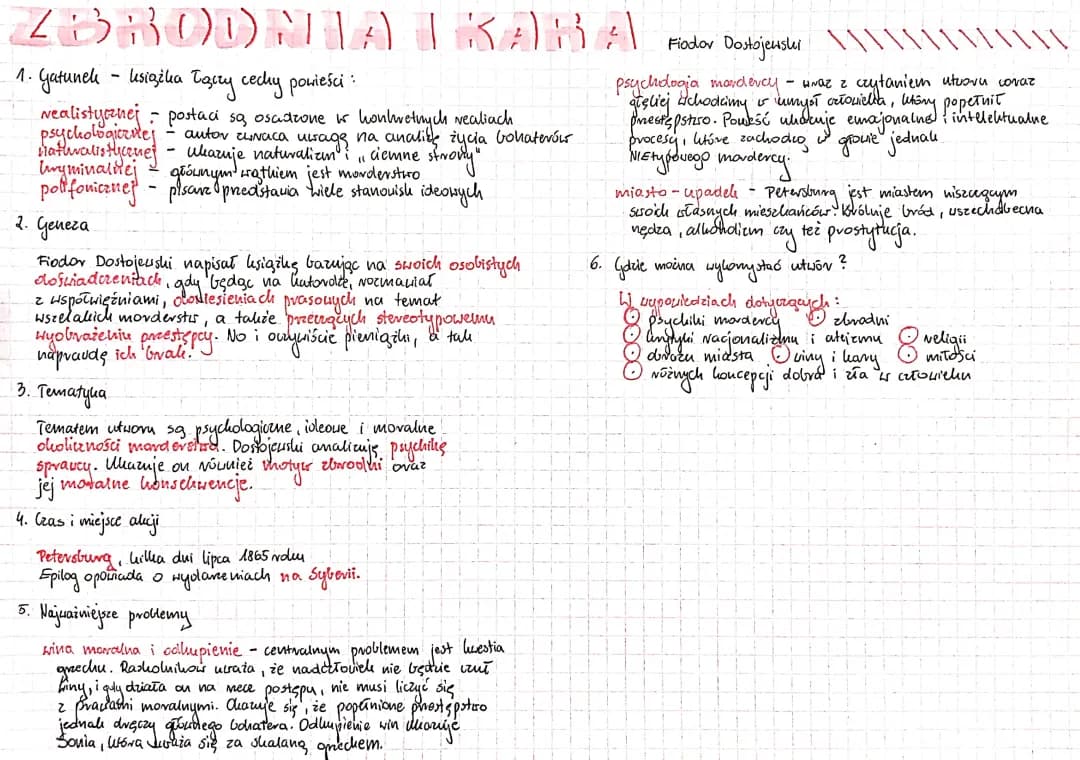 ZBRODNIA I KARA
Fiodor Dostojewski
1. Gatunek - książka łączy cechy powieści:
realistycznej - postaci są osadzone w konkretnych realiach
psychologicznej - autor zwraca uwagę na analizę życia bohaterów
naturalistycznej - ukazuje naturalizm i "ciemne strony"
kryminalnej - głównym wątkiem jest morderstwo
polifonicznej - pisarz przedstawia wiele stanowisk ideowych
2. Geneza
Fiodor Dostojewski napisał książkę bazując na swoich osobistych
doświadczeniach, gdy będąc na katordze, rozmawiał
z współwięźniami, doniesieniach prasowych na temat
wszelakich morderstw, a także przeczących stereotypowemu
wyobrażeniu przestępcy. No i oczywiście pieniążki, a tak
naprawdę ich brak.
3. Tematyka
Tematem utworu są psychologiczne, ideowe i moralne
okoliczności morderstwa. Dostojewski analizuje psychikę
sprawcy. Ukazuje on również motyw zbrodni oraz
jej moralne konsekwencje.
4. Czas i miejsce akcji
Petersburg, kilka dni lipca 1865 roku
Epilog opowiada o wydarzeniach na Syberii.
5. Najważniejsze problemy
wina moralna i odkupienie - centralnym problemem jest kwestia
grzechu. Raskolnikow uważa, że nadczłowiek nie będzie czuł
winy, i gdy działa on na rzecz postępu, nie musi liczyć się
z prawami moralnymi. Okazuje się, że popełnione przestępstwo
jednak dręczy głównego bohatera. Odkupienie win ukazuje
Sonia, która uważa się za skalaną grzechem.
psychologia mordercy - wraz z czytaniem utworu coraz
głębiej wchodzimy w umysł człowieka, który popełnił
przestępstwo. Powieść ukazuje emocjonalne i intelektualne
procesy, które zachodzą w głowie jednak
NIEtypowego mordercy.
miasto - upadek - Petersburg jest miastem niszczącym
swoich własnych mieszkańców. Króluje bród, wszechobecna
nędza, alkoholizm czy też prostytucja.
6. Gdzie można wykorzystać utwór?
W wypowiedziach dotyczących:
psychiki mordercy zbrodni
krytyki racjonalizmu i ateizmu religii
obrazu miasta winy i kary miłości
różnych koncepcji dobra i zła w człowieku